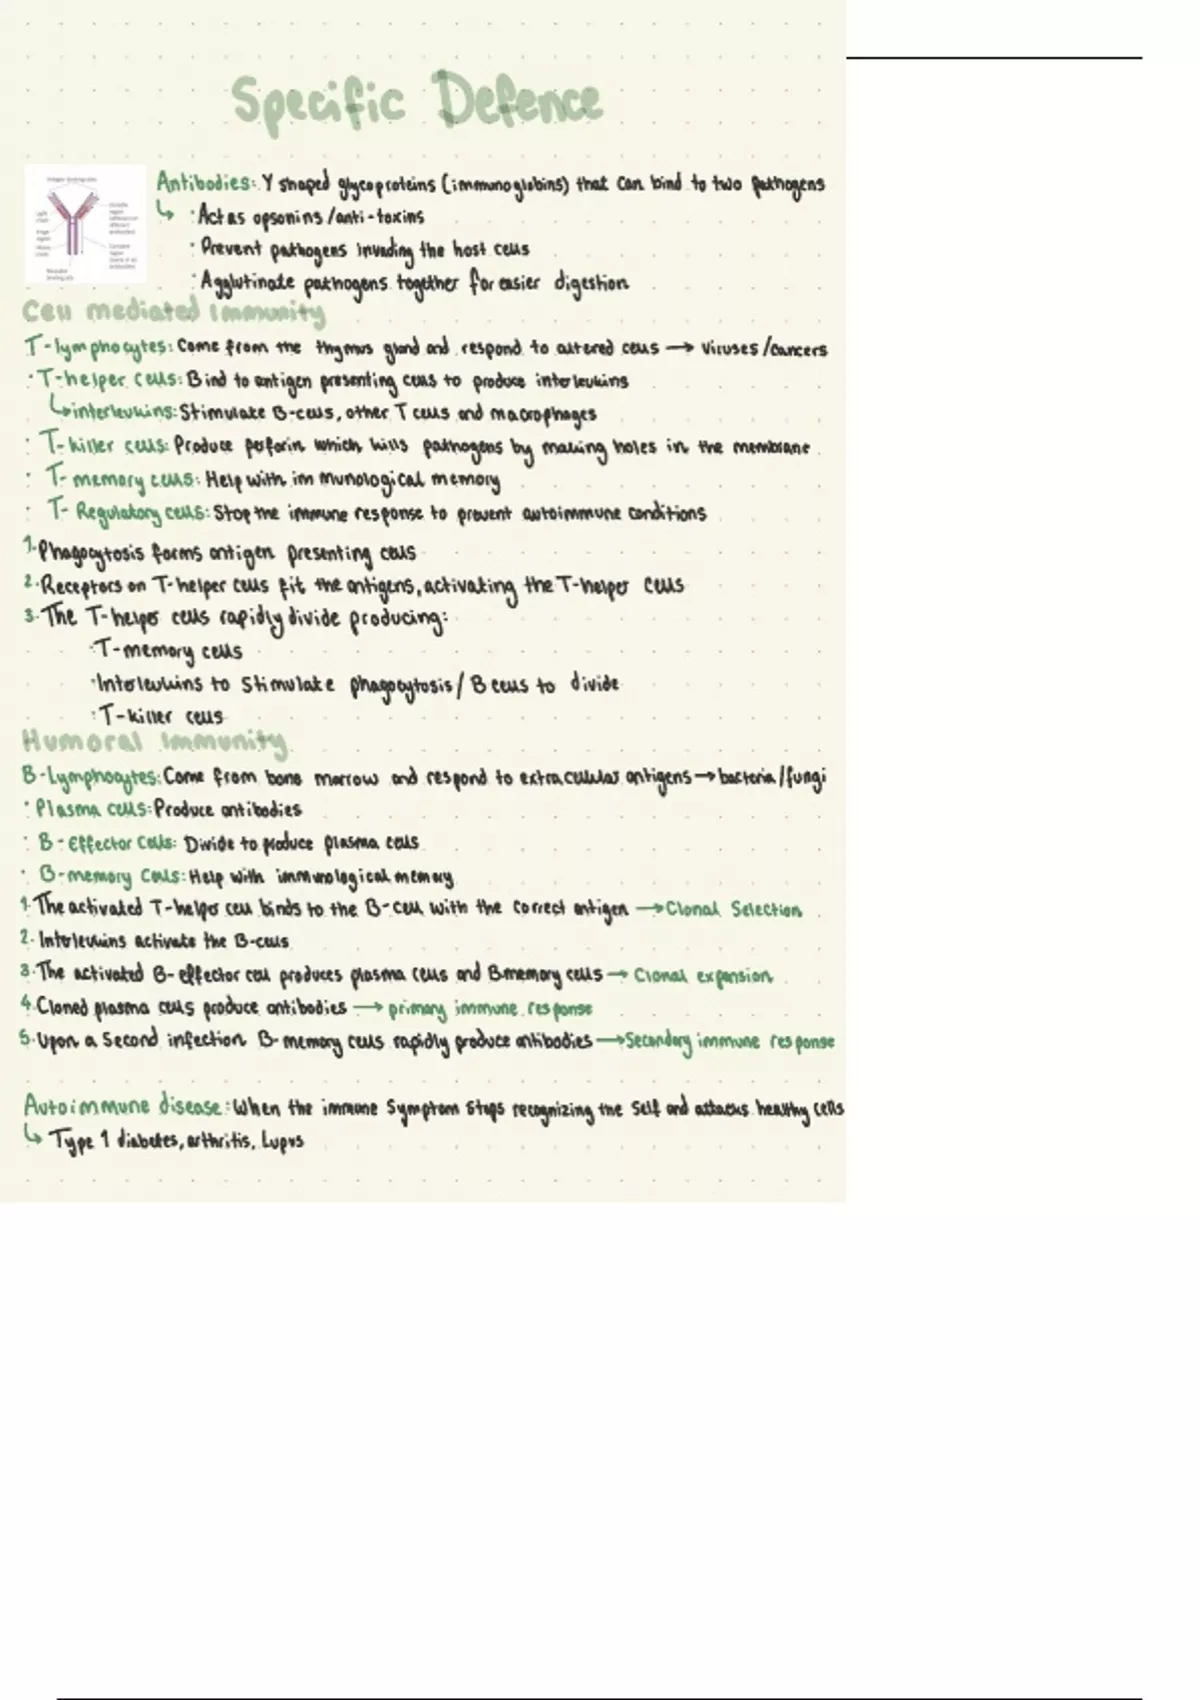 Specific Defence
Antibodies: Y shaped glycoproteins (immunoglobins) that can bind to two pathogens
↳ · Act as opsonins/anti-toxins
· Prevent pathogens invading the host cells
· Agglutinate pathogens together for easier digestion
Antigen binding sites
Light chain
Hinge region
Heavy chain
Variable region (different on different antibodies)
Constant region (same in all antibodies)
Receptor binding site
Cell mediated Immunity
T-lymphocytes: Come from the thymus gland and respond to altered cells → viruses/cancers
· T-helper cells: Bind to antigen presenting cells to produce interleukins
↳ interleukins: Stimulate B-cells, other T cells and macrophages
· T-killer cells: Produce perforin which kills pathogens by making holes in the membrane
· T-memory cells: Help with immunological memory
· T-Regulatory cells: Stop the immune response to prevent autoimmune conditions
1. Phagocytosis forms antigen presenting cells
2. Receptors on T-helper cells fit the antigens, activating the T-helper cells
3. The T-helper cells rapidly divide producing:
· T-memory cells
· Interleukins to stimulate phagocytosis/B cells to divide
· T-killer cells
Humoral Immunity
B-Lymphocytes: Come from bone marrow and respond to extracellular antigens → bacteria/fungi
· Plasma cells: Produce antibodies
· B-Effector Cells: Divide to produce plasma cells
· B-memory Cells: Help with immunological memory
1. The activated T-helper cell binds to the B-cell with the correct antigen → Clonal Selection
2. Interleukins activate the B-cells
3. The activated B-effector cell produces plasma cells and B memory cells → Clonal expansion
4. Cloned plasma cells produce antibodies → primary immune response
5. Upon a second infection B-memory cells rapidly produce antibodies → Secondary immune response
Autoimmune disease: When the immune Symptom stops recognizing the self and attacks healthy cells
↳ Type 1 diabetes, arthritis, Lupus